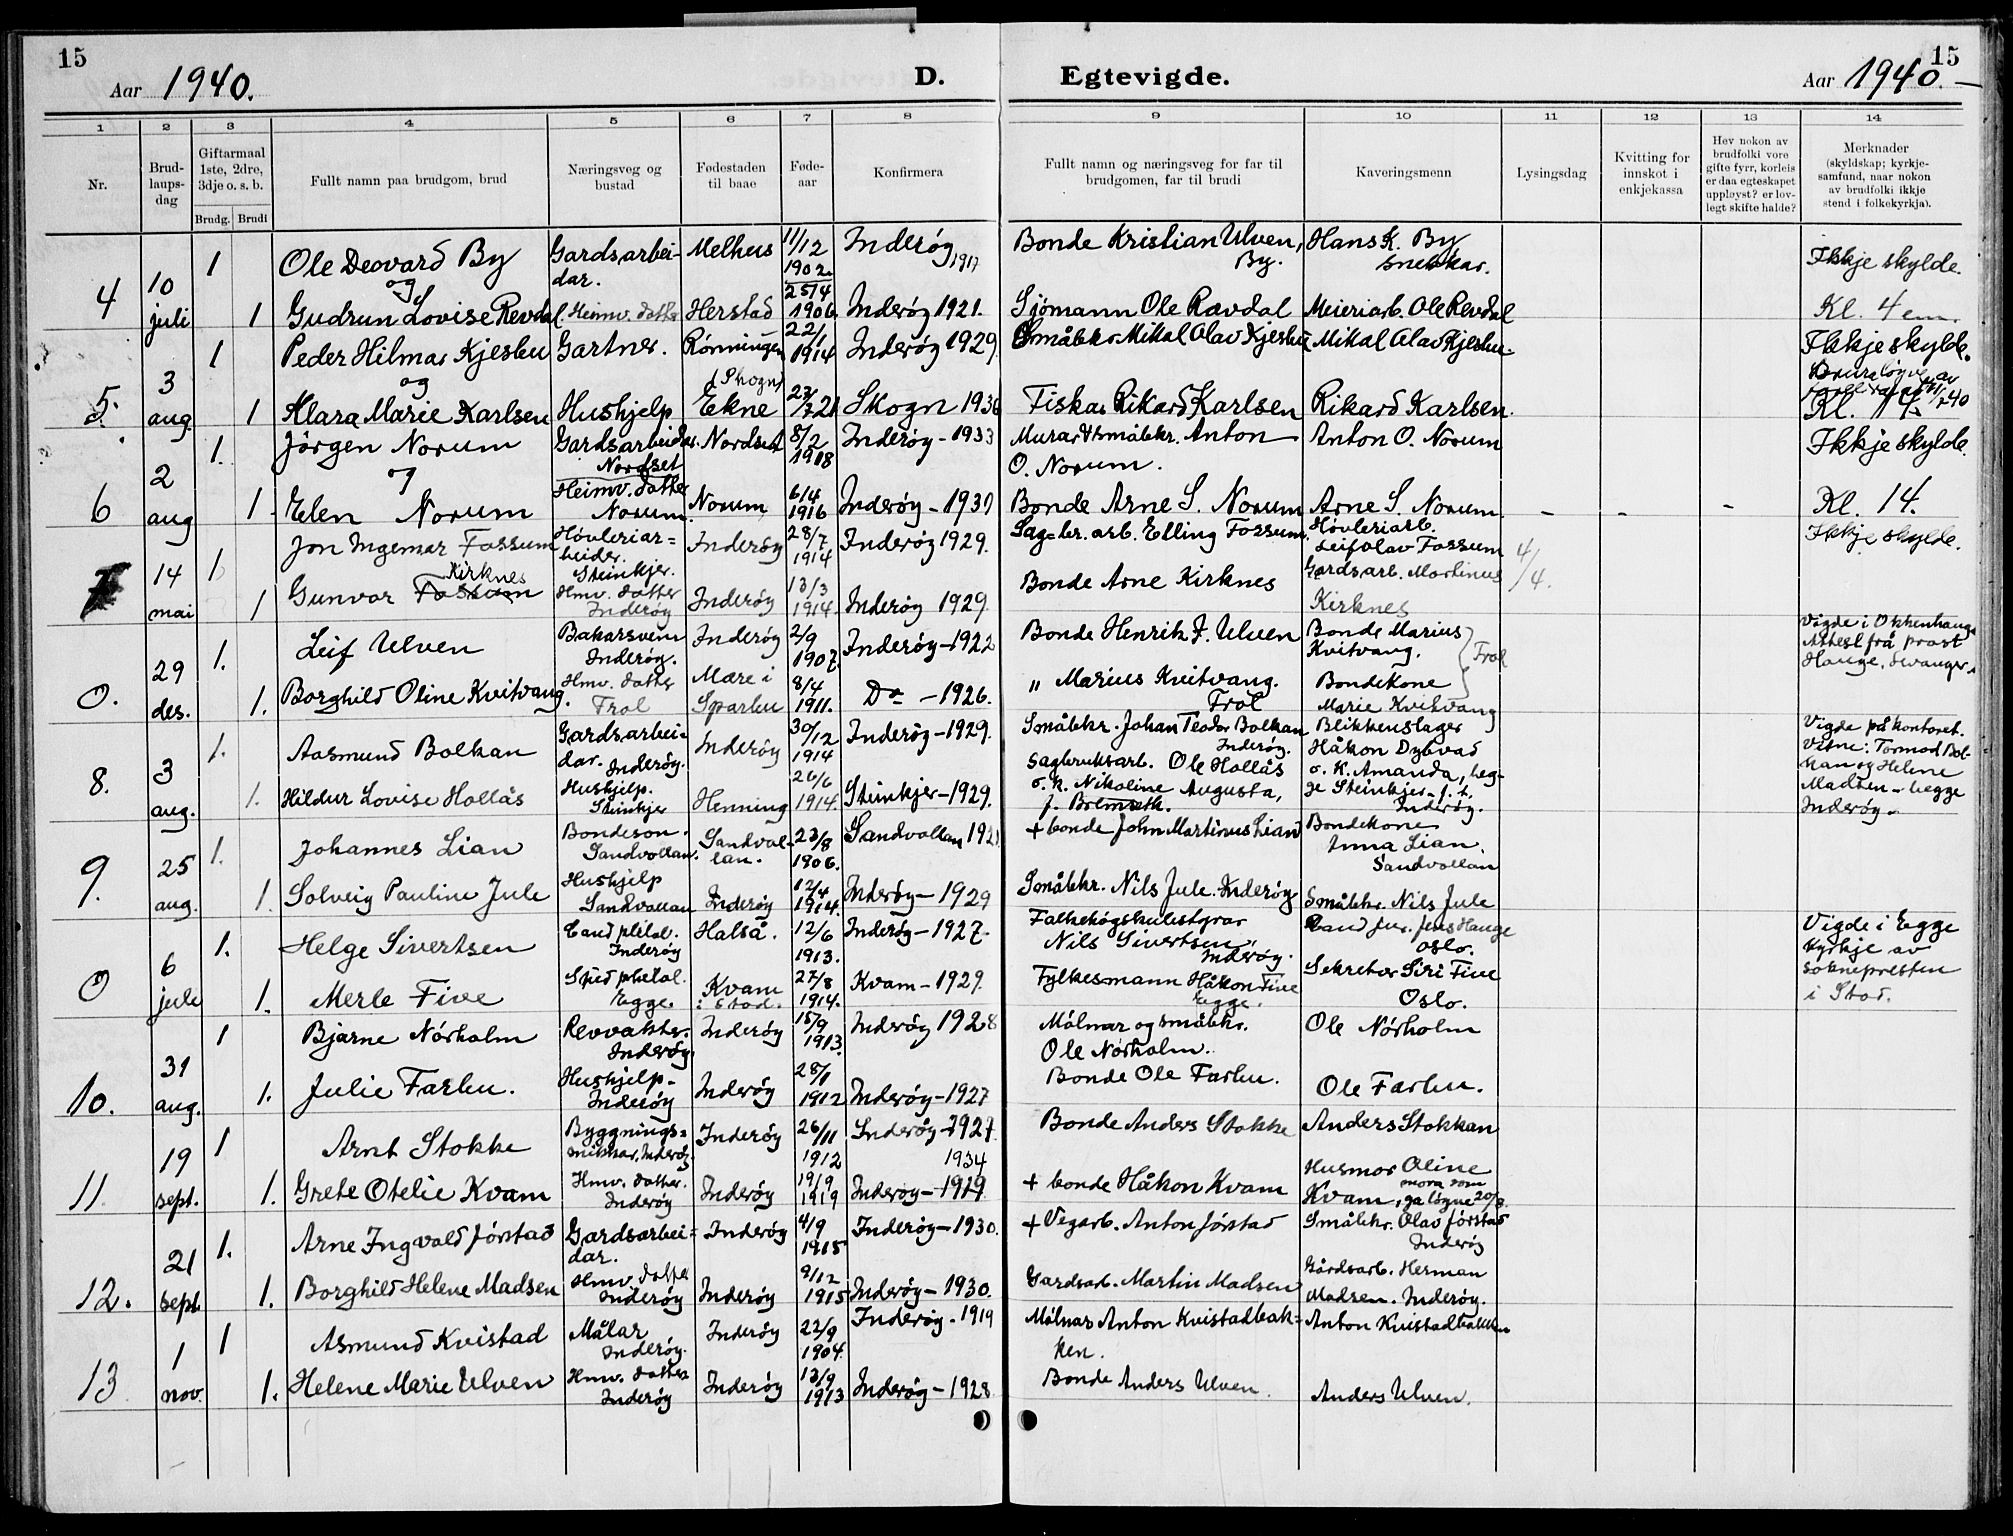 15
Aar 1940.
D.
Egtevigde.
15
Aar 1940.
1 2 3 4 5 6 7 8 9 10 11 12 13 14
Nr.
Brud-
laups-
dag
Giftarmaal
1ste, 2dre,
3dje o. s. b.
Brudg. Brudi
Fullt namn paa brudgom, brud
Næringsveg og
bustad
Fødestaden
til baae
Føde-
aar
Konfirmera
Fullt namn og næringsveg for far til
brudgomen, far til brudi
Kaveringsmenn
Lysingsdag
Kvitting for
innskot i
enkjekassa
Hev nokon av
brudfolki vore
gifte fyrr, korleis
er daa egteskapet
uppløyst? er lov-
legt skifte halde?
Merknader
(skyldskap; kyrkje-
samfund, naar nokon
av brudfolki ikkje
stend i folkekyrkja).
4
10 juli
1 Ole Deovard By Gardsarbei-dar. Melhus 11/12 1902 Inderøy 1917 Bonde Kristian Ulven, By. Hans K. By snekkar. Ikkje skylde.
og
1 Gudrun Lovise Revdal. Heimv. datter Herstad 25/4 1906 Inderøy 1921. Sjömann Ole Rævdal Meieriarb. Ole Revdal Kl. 4 em.
5.
3 aug.
1 Peder Hilmar Kjeslu Gartner. Rönningen 22/1 1914 Inderøy 1929. Småbkr. Mikal Olav Kjeslu Mikal Olav Kjeslu. Ikkje skylde.
og
1 Klara Marie Karlsen Hushjelp (Skogn) Ekne 23/7 21 Skogn 1936 Fiskar Rikard Karlsen Rikard Karlsen. Kl. 14.
6
2 aug
1. Jørgen Norum Gardsarbeidar. Nordset Nordset 8/2 1908 Inderøy - 1933 Murar & småbkr. Anton O. Norum. Anton O. Norum Ikkje skylde.
og
1. Elen Norum Heimv. datter Norum. Norum 6/4 1916 Inderøy - 1930 Bonde Arne S. Norum Arne S. Norum. - - - Kl. 14.
7
14 mai
1 Jon Ingemar Fossum Høvleriar=beider. Steinkjer. Inderøy 28/7 1914 Inderøy 1929. Sag=br. arb. Elling Fossum. Høvleriarb. Leif Olav Fossum 4/4. Ikkje skylde.
1 Gunvor Fossum Kirknes Hmv. datter Inderøy Inderøy 13/3 1914. Inderøy 1929. Bonde Arne Kirknes Gardsarb. Martinus Kirknes
0.
29 des.
1. Leif Ulven Bakarsvenn Inderøy. Inderøy 2/9 1907 Inderøy - 1922 Bonde Henrik J. Ulven Bonde Marius Kvitvang. Frol Vigde i Okkenhaug. Attest frå prost Hauge, Levanger.
1. Borghild Oline Kvitvang. Hmv. datter Frol Mære i Sparbu 8/4 1911. Do - 1926. " Marius Kvitvang. Frol Bondekone Marie Kvitvang
8.
3 aug.
1. Aasmund Bolkan Gardsarbei=dar. Inderøy. Inderøy 30/12 1914 Inderøy - 1929. Småbkr. Johan Teodor Bolkan Inderøy. Blikkenslager Håkon Dybvad Vigde på kontoret. Vitne: Tormod Bol-kan og Helene Madsen - begge Inderøy.
1. Hildur Lovise Hollås Hushjelp. Steinkjer Henning 26/6 1914. Steinkjer - 1929. Sagbruksarb. Ole Hollås o. k. Nikoline Augusta, f. Bremseth. o. k. Amanda, beg-ge Steinkjer - f. t. Inderøy.
9.
25 aug.
1. Johannes Lian Bondeson. Sandvollan. Sandvol-lan. 23/8 1906. Sandvollan + bonde John Martinus Lian Bondekone Anna Lian. Sandvollan
1. Solveig Pauline Jule Hushjelp Sandvollan Inderøy 12/4 1914. Inderøy - 1929 Småbkr. Nils Jule. Inderøy Småbkr. Nils Jule
0
6 jule
1. Helge Sivertsen Cand philol. Inderøy Halså. 12/6 1913. Inderøy - 1927. Folkehøgskulestyrar Nils Sivertsen, Inderøy. Cand jur. Jens Hauge Oslo. Vigde i Egge kyrkje av soknepresten i Stod.
1. Merle Five Stud philol. Egge. Kvam i Stod. 27/8 1914. Kvam - 1929. Fylkesmann Håkon Five Egge. Sekretær Siri Five Oslo.
10.
31 aug.
1 Bjarne Nörholm Revvakter. Inderøy. Inderøy 15/9 1913. Inderøy 1928 Mölnar og småbkr. Ole Nörholm. Ole Nörholm
1. Julie Farbu. Hushjelp - Inderøy Inderøy 28/1 1912 Inderøy - 1927 Bonde Ole Farbu. Ole Farbu.
11.
19 sept.
1 Arnt Stokke Byggnings=snikkar, Inderøy. Inderøy 26/11 1912 Inderøy - 1927. Bonde Anders Stokke Anders Stokkan
1. Grete Otelie Kvam Hmv. datter. Inderøy Inderøy 19/9 1919 Inderøy - 1919 1934 + bonde Håkon Kvam Husmor Oline Kvam, mora som ga løyve 20/8.
12.
21 sept.
1. Arne Ingvald Jørstad Gardsarbei=dar. Inderøy 4/9 1915 Inderøy - 1930. + Vegarb. Anton Jørstad Småbkr. Olav Jørstad Inderøy
1. Borghild Helene Madsen Hmv. datter Inderøy Inderøy 9/12 1915 Inderøy - 1930. Gardsarb. Martin Madsen Gårdsarb. Herman Madsen. Inderøy.
13
1 nov.
1 Asmund Kvistad Målar Inderøy. Inderøy 22/9 1904. Inderøy - 1919 Mölnar Anton Kvistadbak=ken. Anton Kvistadbakken
1. Helene Marie Ulven Hmv. datter Inderøy Inderøy 13/9 1913 Inderøy - 1928. Bonde Anders Ulven. Anders Ulven.